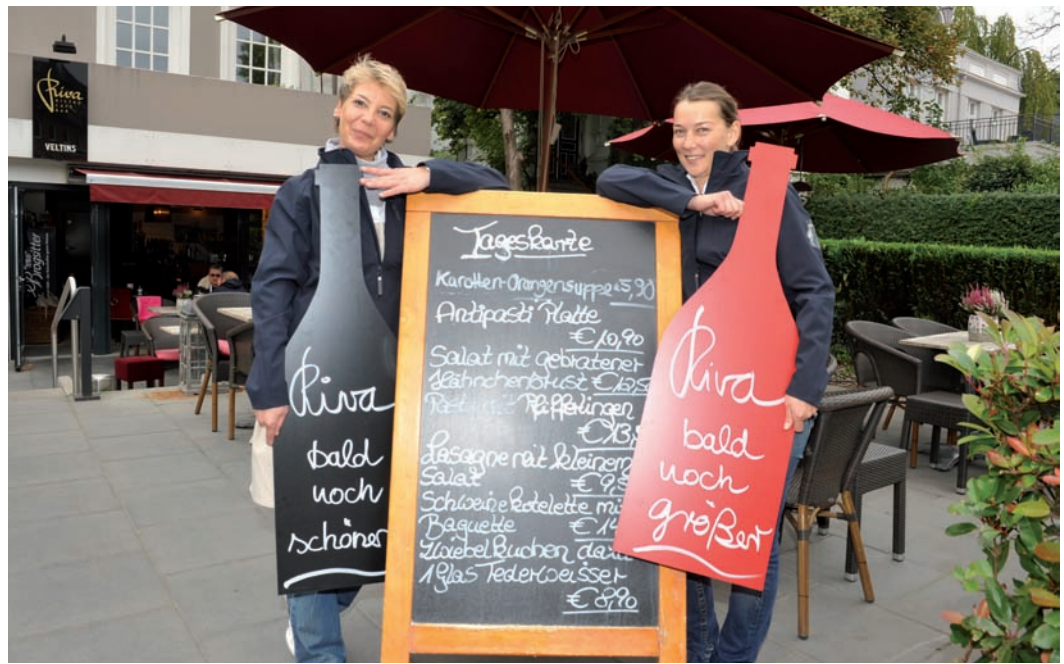 Riva
VELTINS
Brogsitter
Tageskarte
Karotten-Orangensuppe € 5,90
Antipasti Platte
€ 10,90
Salat mit gebratener
Hähnchenbrust
Pasta mit Pfifferlingen
€ 13,
Lasagne mit kleinem
Salat € 9,
Schweinekotelette mit
Baguette € 14
Zwiebelkuchen dazu
1 Glas Federweisser
€ 8,90
Riva
bald
noch
schöner
Riva
bald
noch
größer